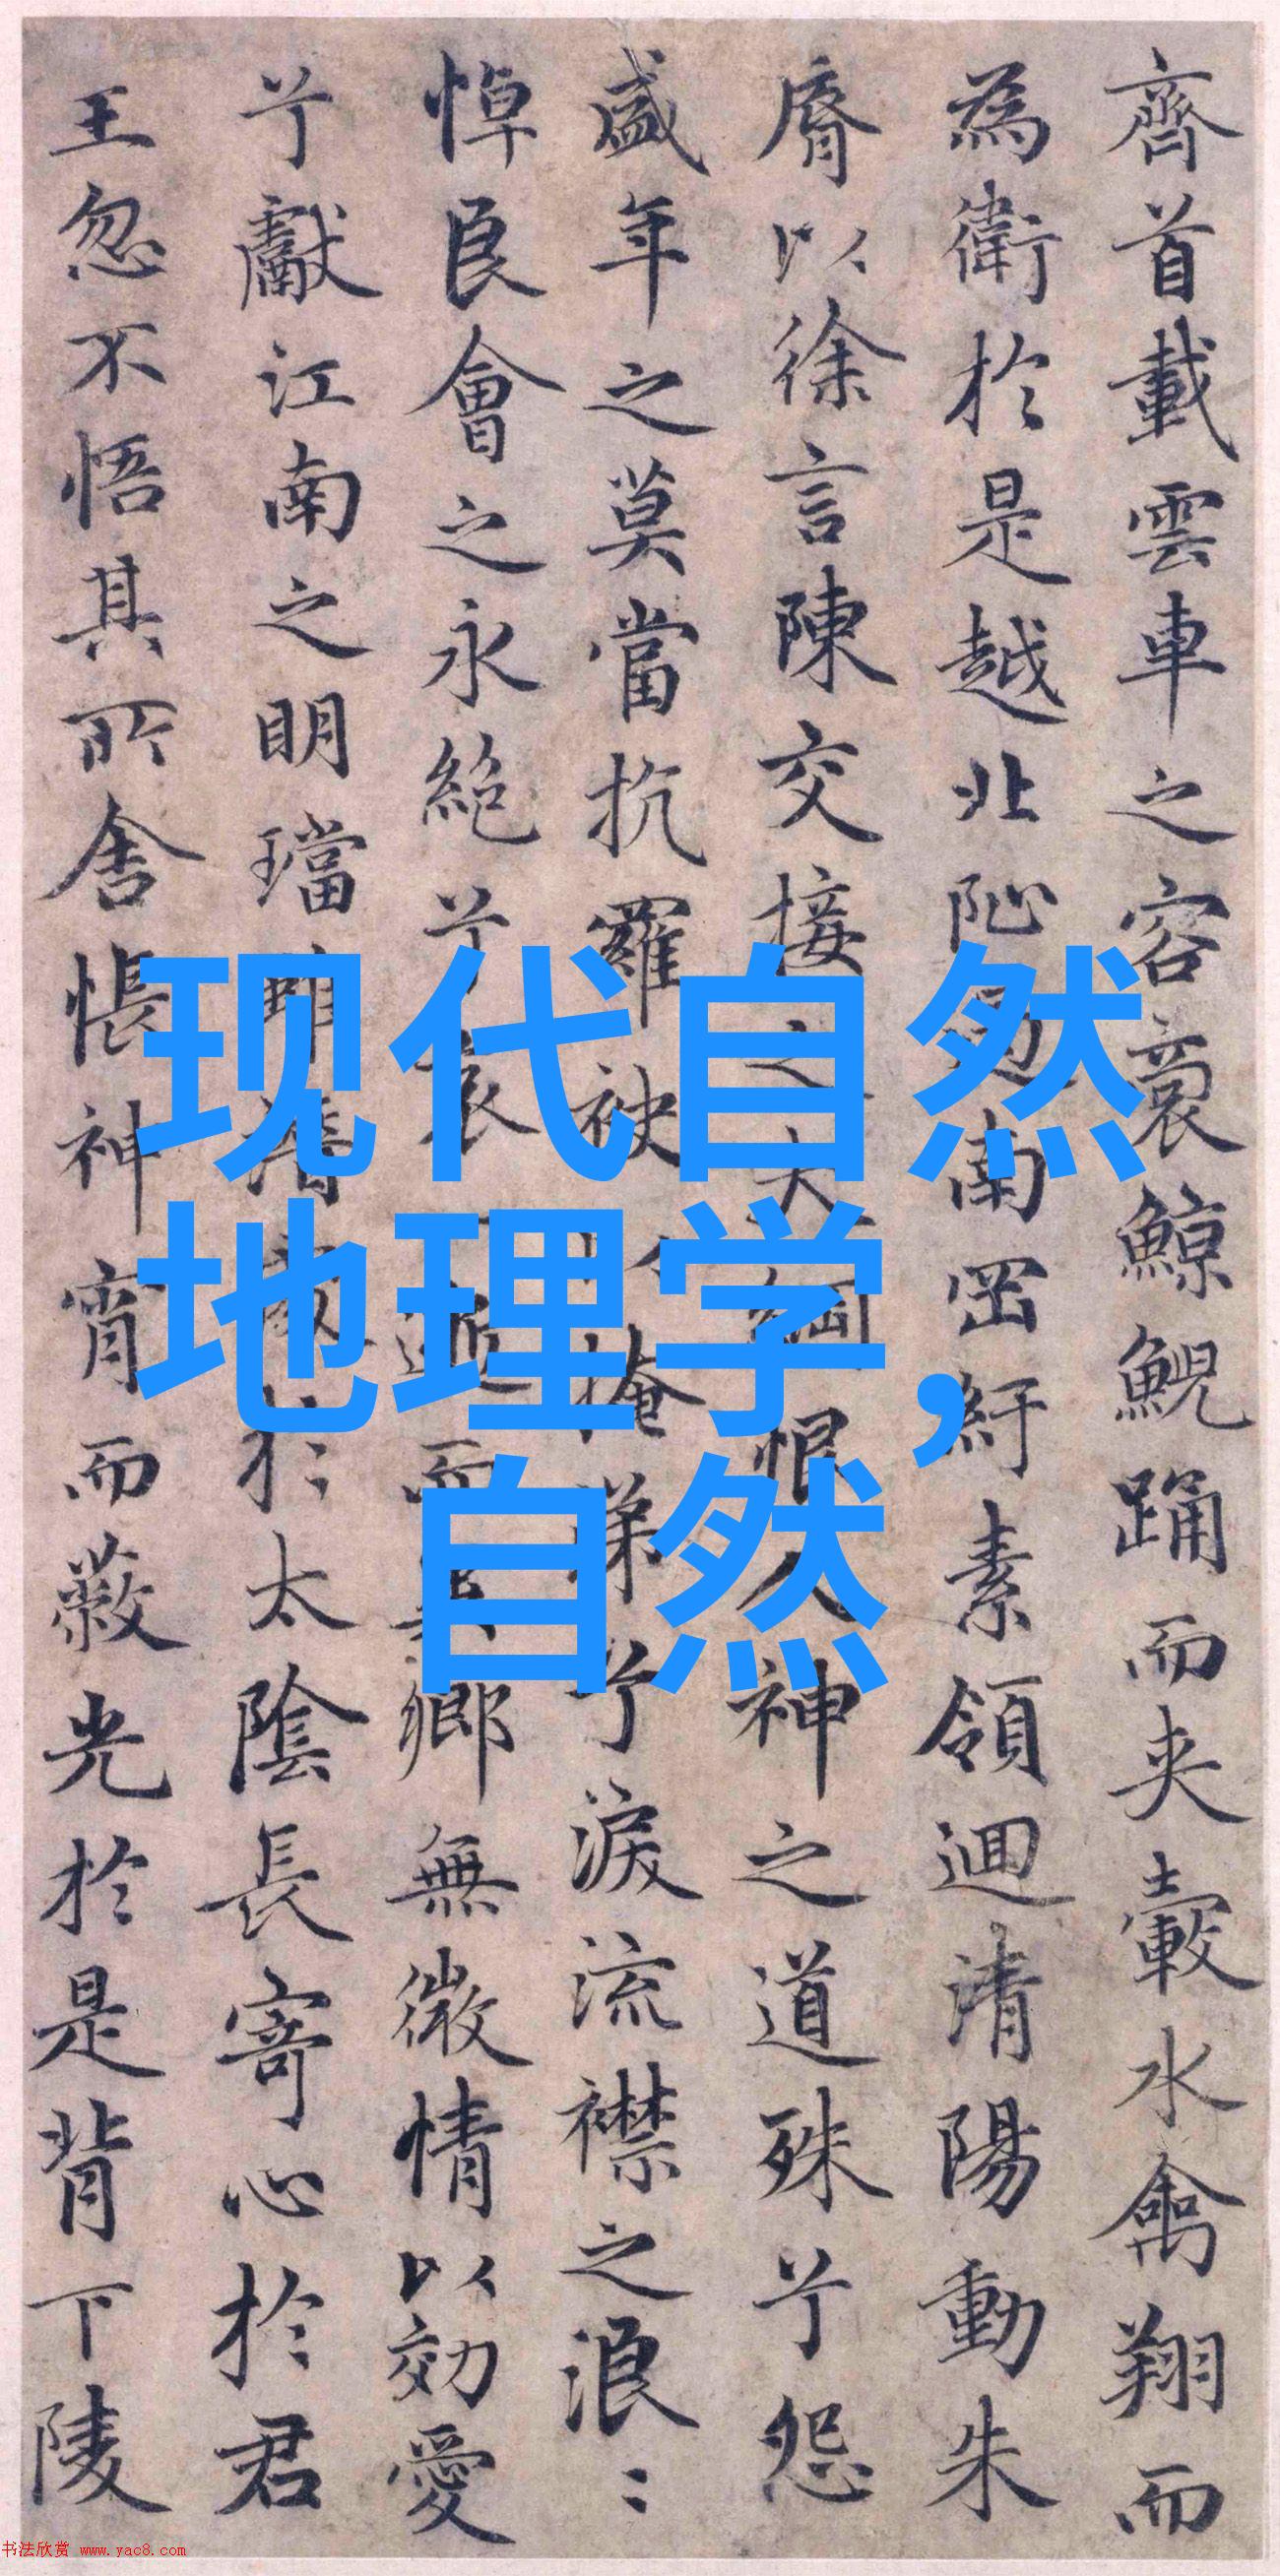 齊首載雲車之容裔鯨鯢踊而夾轂水禽翔而
為衛於是越北沚過南岡紆素領迴清陽動朱
脣以徐言陳交接之大綱恨人神之道殊兮怨
盛年之莫當抗羅袂以掩涕兮淚流襟之浪〻
悼良會之永絕兮哀逝而鄉無微情以効愛
兮獻江南之明璫雖潛於太陰長寄心於君
王忽不悟其所舍悵神宵而蔽光於是背下陵
现代自然
地理学，
自然
书法欣赏 www.yac8.com